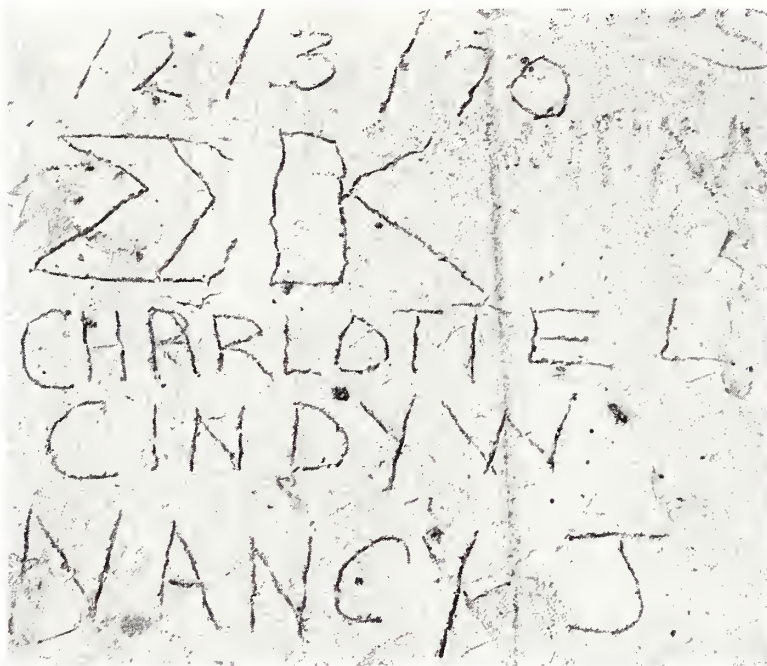 12/3/70
ΣK
CHARLOTTE L
CINDY W
NANCY J